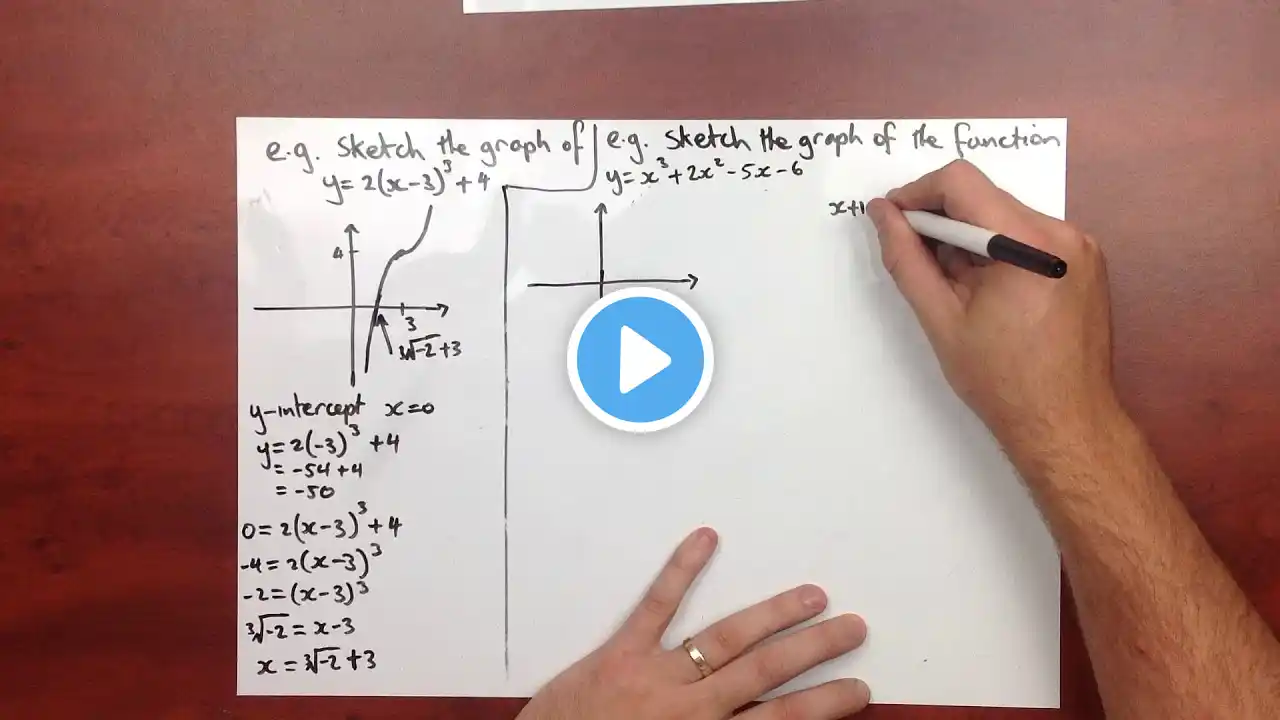 e.g. Sketch the graph of
y=2(x-3)³+4
4
3
∛-2+3
y-intercept x=0
y=2(-3)³+4
=-54+4
=-50
0=2(x-3)³+4
-4=2(x-3)³
-2=(x-3)³
∛-2=x-3
x=∛-2+3
e.g. Sketch the graph of the function
y=x³+2x²-5x-6
x+1